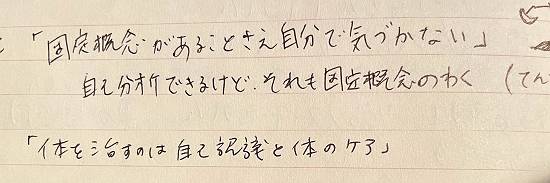 「固定概念があることさえ自分で気づかない」
自己分析できるけど、それも固定概念のわく (てん
「体を治すのは自己認識と体のケア」